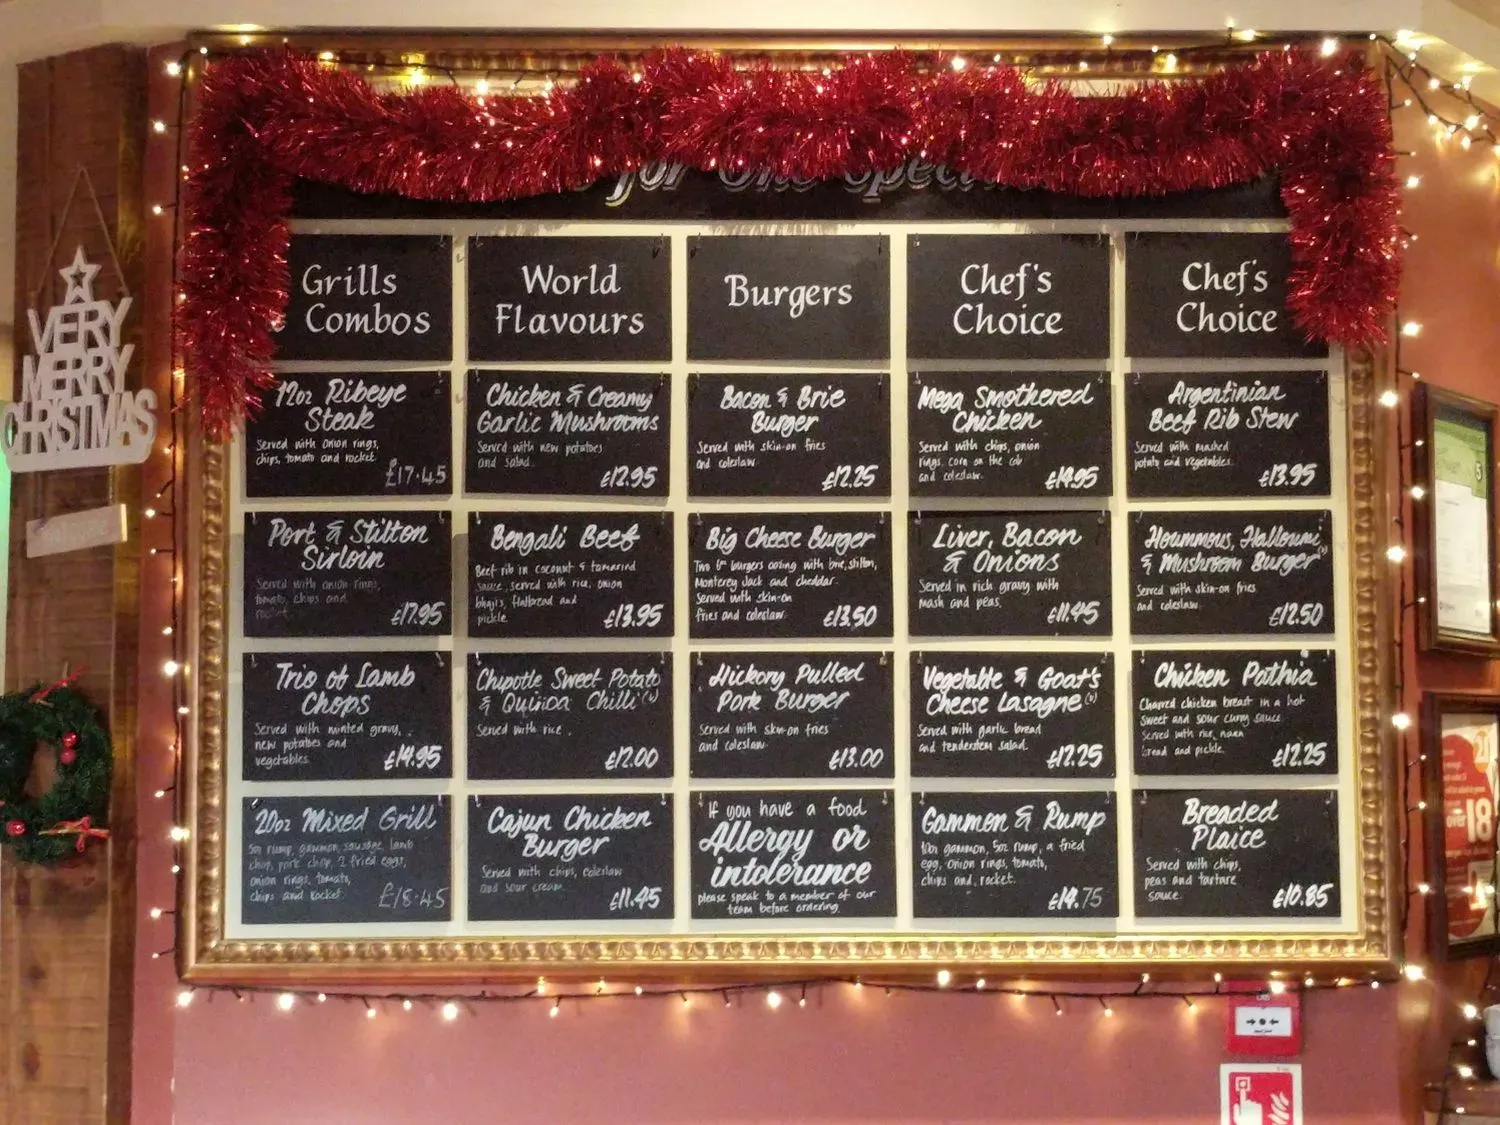 for One Specials
Grills
Combos
World
Flavours
Burgers
Chef's
Choice
Chef's
Choice
12oz Ribeye
Steak
Served with onion rings,
chips, tomato and rocket.
£17.45
Chicken & Creamy
Garlic Mushrooms
Served with new potatoes
and salad.
£12.95
Bacon & Brie
Burger
Served with skin-on fries
and coleslaw.
£12.25
Mega Smothered
Chicken
Served with chips, onion
rings, corn on the cob
and coleslaw.
£14.95
Argentinian
Beef Rib Stew
Served with mashed
potato and vegetables.
£13.95
Port & Stilton
Sirloin
Served with onion rings,
tomato, chips and
rocket.
£17.95
Bengali Beef
Beef rib in coconut & tamarind
sauce, served with rice, onion
bhajis, flatbread and
pickle.
£13.95
Big Cheese Burger
Two 6oz burgers oozing with brie, stilton,
Monterey Jack and cheddar.
Served with skin-on
fries and coleslaw.
£13.50
Liver, Bacon
& Onions
Served in rich gravy with
mash and peas.
£11.45
Hoummous, Halloumi
& Mushroom Burger (v)
Served with skin-on fries
and coleslaw.
£12.50
Trio of Lamb
Chops
Served with minted gravy,
new potatoes and
vegetables.
£14.95
Chipotle Sweet Potato
& Quinoa Chilli (v)
Served with rice.
£12.00
Hickory Pulled
Pork Burger
Served with skin-on fries
and coleslaw.
£13.00
Vegetable & Goat's
Cheese Lasagne (v)
Served with garlic bread
and tenderstem salad.
£12.25
Chicken Pathia
Charred chicken breast in a hot
sweet and sour curry sauce.
Served with rice, naan
bread and pickle.
£12.25
20oz Mixed Grill
5oz rump, gammon, sausage, lamb
chop, pork chop, 2 fried eggs,
onion rings, tomato,
chips and rocket.
£18.45
Cajun Chicken
Burger
Served with chips, coleslaw
and sour cream.
£11.45
If you have a food
Allergy or
intolerance
please speak to a member of our
team before ordering.
Gammon & Rump
10oz gammon, 5oz rump, a fried
egg, onion rings, tomato,
chips and rocket.
£14.75
Breaded
Plaice
Served with chips,
peas and tartare
sauce.
£10.85
VERY
MERRY
CHRISTMAS
5
over 18